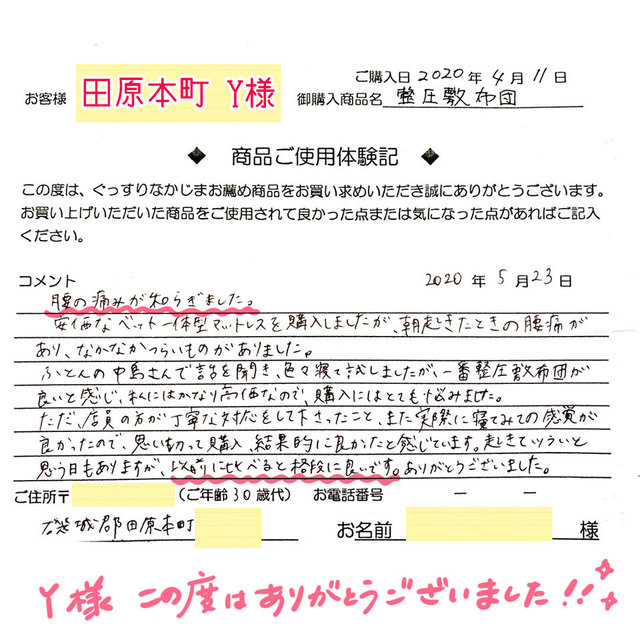 ご購入日 2020年4月11日
お客様 田原本町 Y様 御購入商品名 整圧敷布団
◆ 商品ご使用体験記 ◆
この度は、ぐっすりなかじまお薦め商品をお買い求めいただき誠にありがとうございます。
お買い上げいただいた商品をご使用されて良かった点または気になった点があればご記入
ください。
コメント 2020年5月23日
腰の痛みが和らぎました。
安価なベット一体型マットレスを購入しましたが、朝起きたときの腰痛が
あり、なかなかつらいものがありました。
ふとんの中島さんで話を聞き、色々寝て試しましたが、一番整圧敷布団が
良いと感じ、私にはかなり高価なので、購入にはとても悩みました。
ただ、店員の方が丁寧な対応をして下さったこと、また実際に寝てみての感覚が
良かったので、思い切って購入、結果的に良かったと感じています。起きてツラいと
思う日もありますが、以前に比べると格段に良いです。ありがとうございました。
ご住所〒 (ご年齢30歳代) お電話番号 ー ー
磯城郡田原本町 お名前 様
Y様 この度はありがとうございました!!